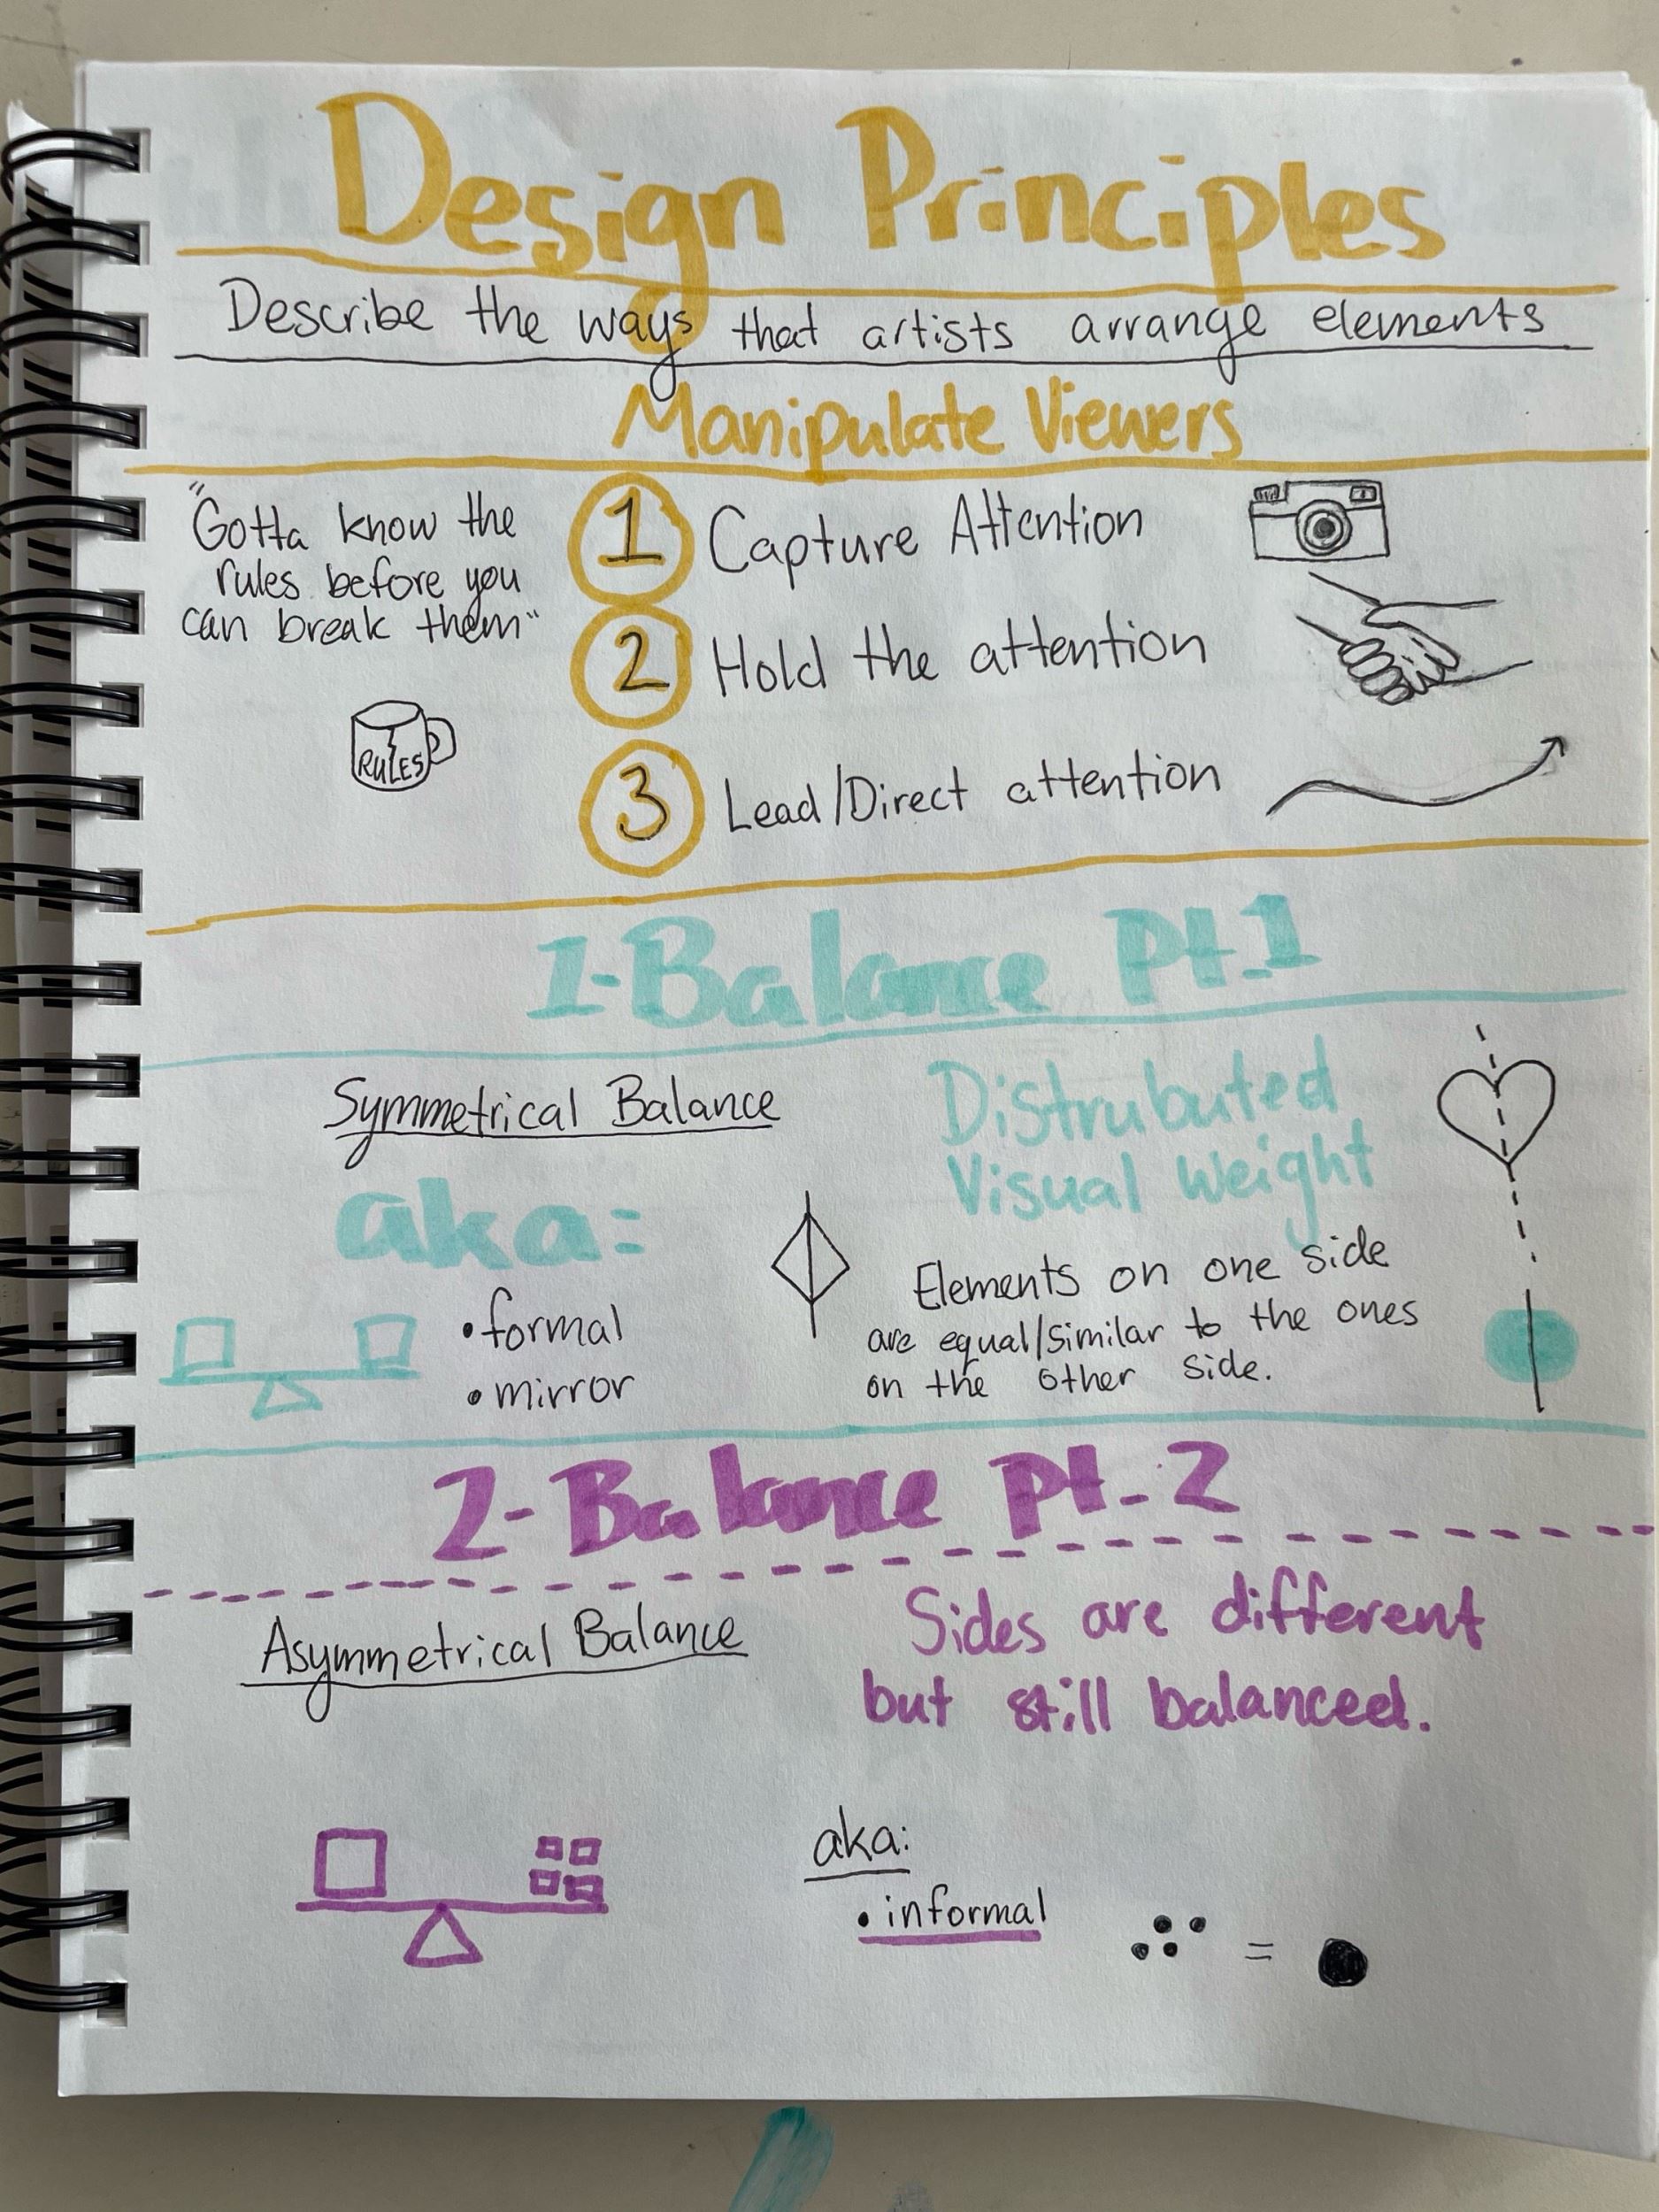 Design Principles
Describe the ways that artists arrange elements
Manipulate Viewers
"Gotta know the
rules before you
can break them"
RULES
1 Capture Attention
2 Hold the attention
3 Lead/Direct attention
1-Balance Pt.1
Symmetrical Balance
aka:
• formal
• mirror
Distrubuted
Visual Weight
Elements on one side
are equal/similar to the ones
on the other side.
2-Balance Pt. 2
Asymmetrical Balance
Sides are different
but still balanced.
aka:
• informal
=